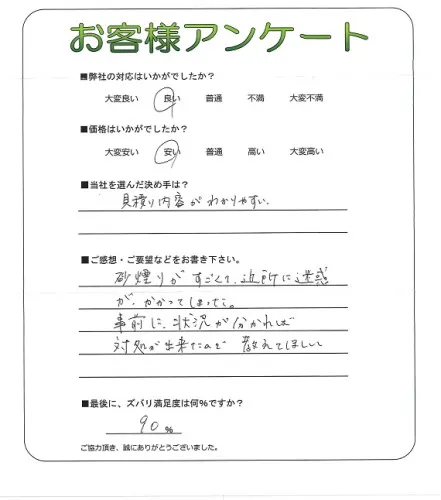 お客様アンケート
■弊社の対応はいかがでしたか？
大変良い 良い 普通 不満 大変不満
■価格はいかがでしたか？
大変安い 安い 普通 高い 大変高い
■当社を選んだ決め手は？
見積り内容がわかりやすい。
■ご感想・ご要望などをお書き下さい。
砂煙りがすごくて、近所に迷惑
が、かかってしまった。
事前に、状況が分かれば
対処が出来たので 教えてほしい
■最後に、ズバリ満足度は何%ですか？
90 %
ご協力頂き、誠にありがとうございました。